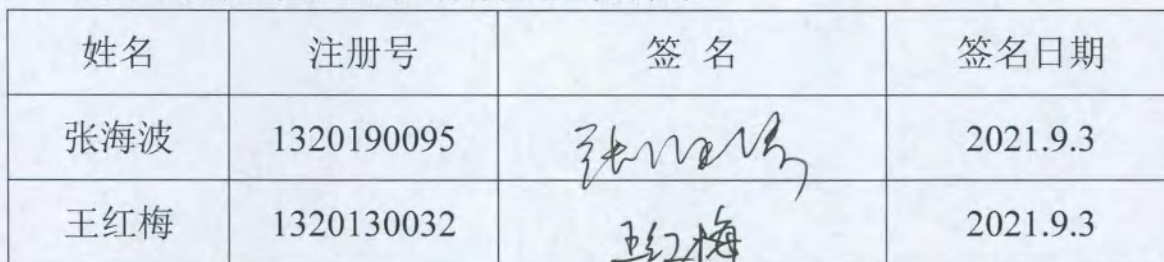 姓名 注册号 签 名 签名日期
张海波 1320190095 2021.9.3
王红梅 1320130032 王红梅 2021.9.3